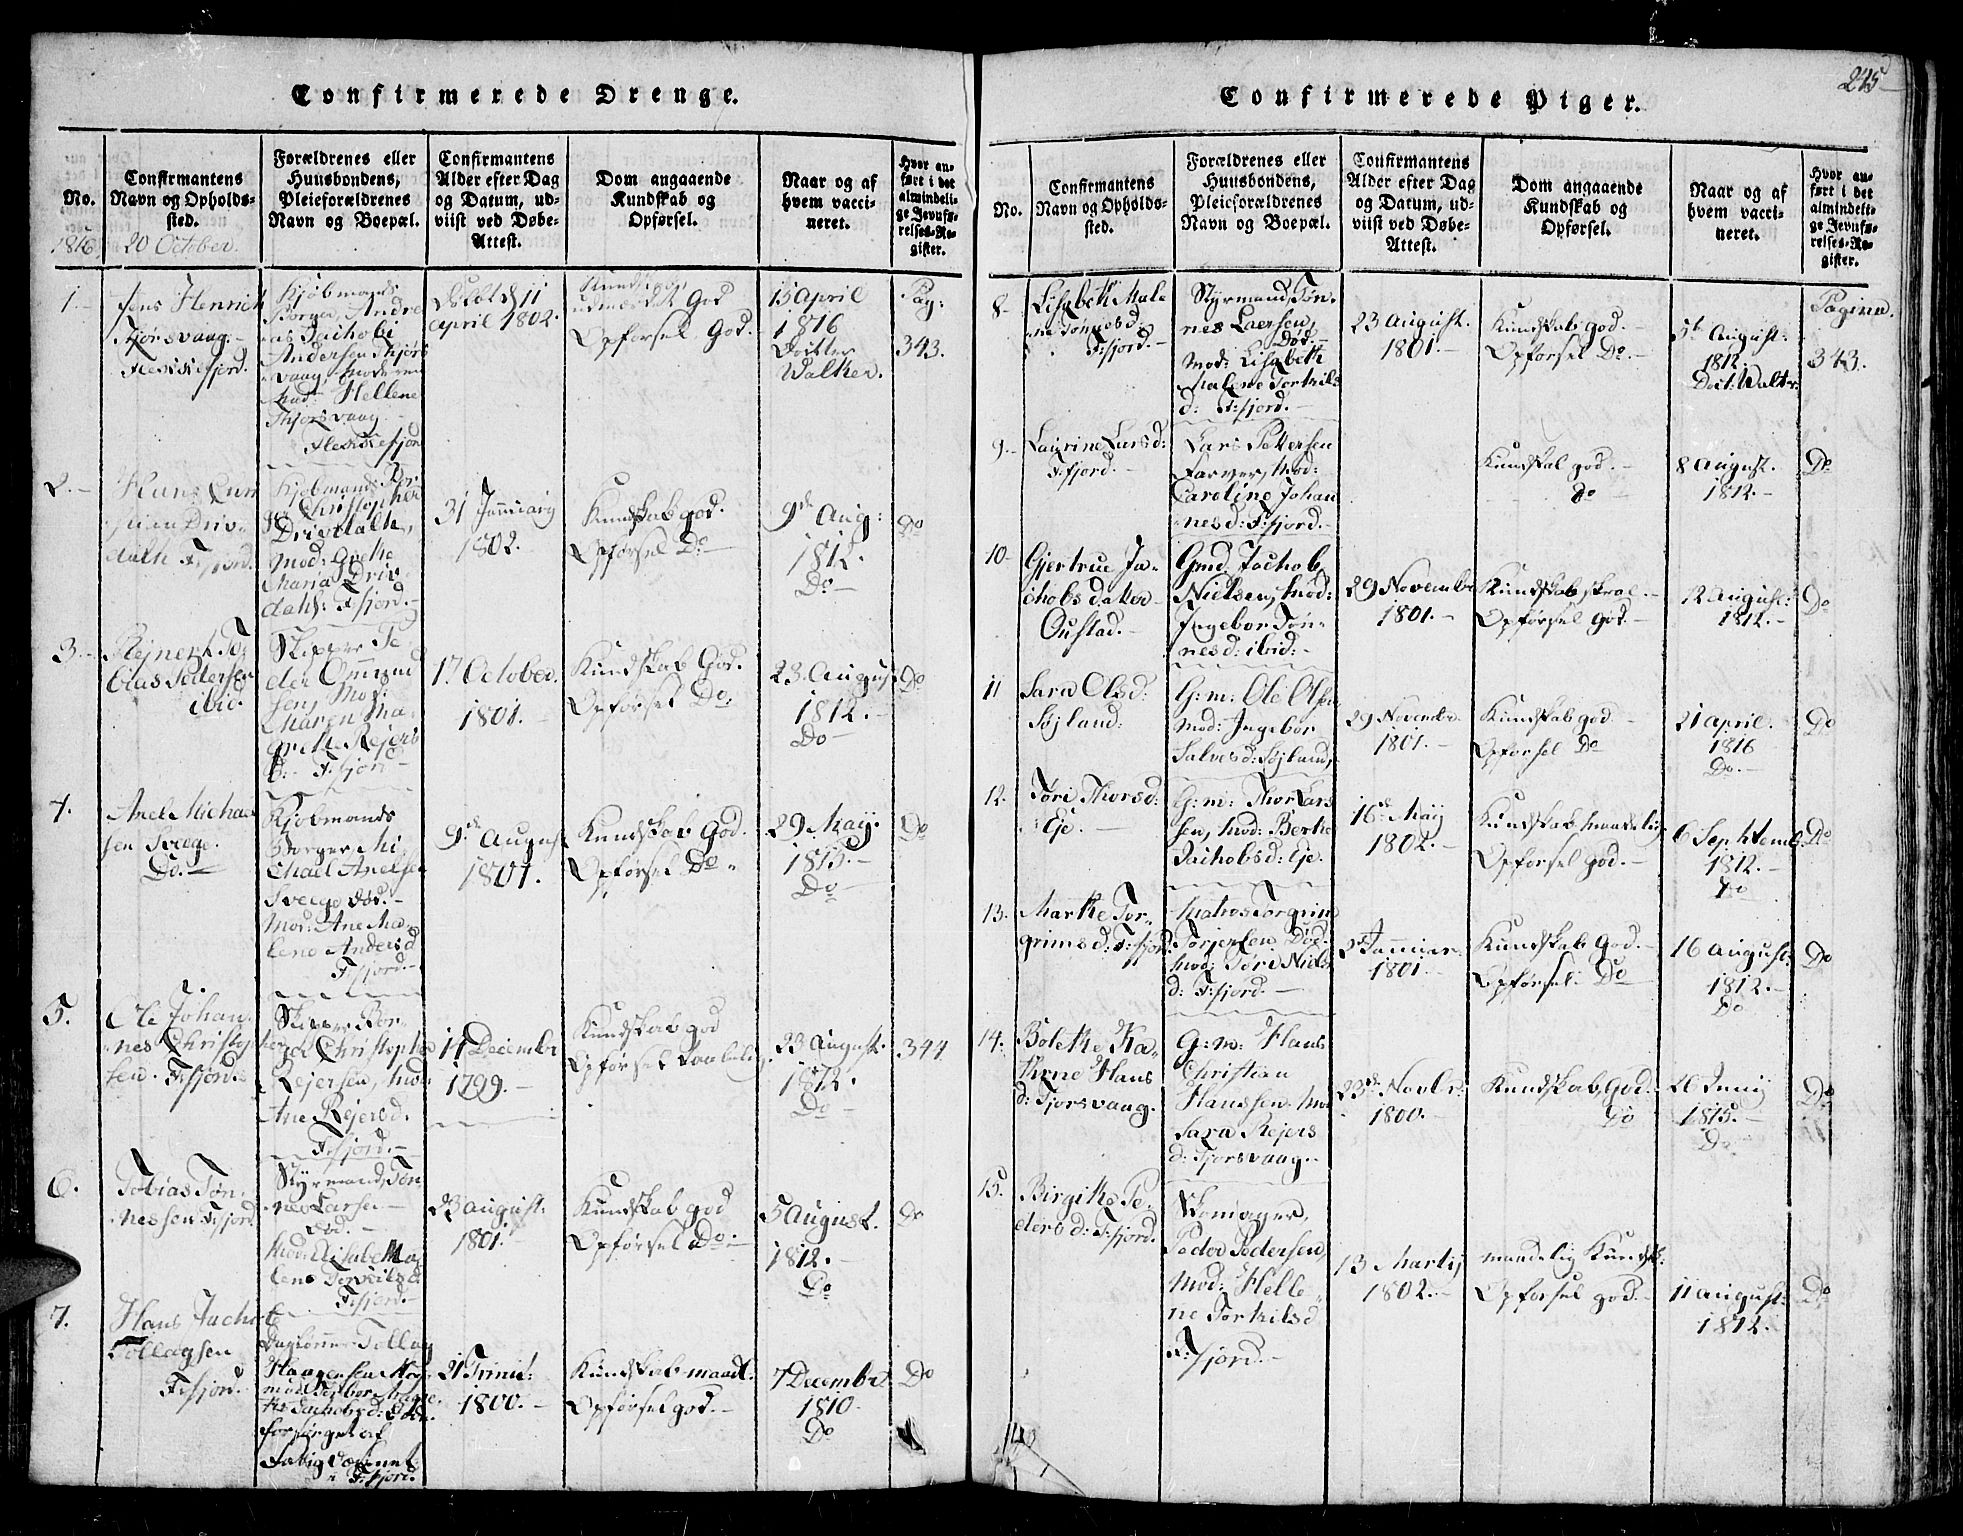 245
Confirmerede Drenge.
No.
Confirmantens
Navn og Opholds-
sted.
Forældrenes eller
Huusbondens,
Pleieforældrenes
Navn og Boepæl.
Confirmantens
Alder efter Dag
og Datum, ud-
viist ved Døbe-
Attest.
Dom angaaende
Kundskab og
Opførsel.
Naar og af
hvem vacci-
neret.
Hvor an-
ført i det
almindeli-
ge Jevnfø-
relses-Re-
gister.
1816 20 October.
1.
Jens Henrich
Fjørsvaag.
Flekkefjord.
Kjøbmands
Borger Andre
as Jachobi
Andersen
vaag, Moderen
Mad. Hellene
Flekkefjord
Døbt d 11
april 1802.
God
Opførsel God.
15 April
1816
Docter
Walker.
Pag:
343.
2.
Hans
Driv-
dahl F:fjord.
Christopher
Drivdahl,
Mod: Grethe
Maria Driv-
dahl: F:fjord.
31 Januarij
1802.
Kundskab god.
Opførsel Do
9de Aug:
1812.
Do
Do
3.
Rejnert To-
bias Pedersen
ibid.
Skipper Pe
der Ommund
sen, Mod:
Maren Ma-
grethe Rejers
d: F:fjord
17 October.
1801.
Kundskab God.
Opførsel Do:
23 August
1812.
Do
Do
4.
Anel Michael
sen Svege.
Do.
Kjøbmands
Borger Mi-
chael Anelsen
Svege død.
Mod: Ane Ma-
lene Andersd
F:fjord.
9de August
1801.
Kundskab God.
Opførsel Do
29 Maij.
1815.
Do
Do
5.
Ole Johan-
nes Christoph
sen. F:fjord.
Skipper Bor-
ger Christopher
Rejersen, Mod
Ane Rejersd.
F:fjord.
11 December
1799.
Kundskab god
Opførsel
23 August.
1812.
Do
344
6.
Tobias Tøn-
nessen F:fjord
Styrmand, Tøn
nes Larsen
død.
Mod: Elisabeth Ma
lene Torkilsd.
F:fjord.
23 August:
1801.
Kundskab god
Opførsel Do:
5 August.
1812.
Do
Do
7.
Hans Jachob
Tollagsen
F:fjord.
Daglønner Tollag
forsørget af
Fattigvæsenet
i F:fjord.
21 Trinit:
1800.
Kundskab maadl:
Opførsel god.
7 Decembr.
1810
Do
Do
Confirmerede Piger.
No.
Confirmantens
Navn og Opholds-
sted.
Forældrenes eller
Huusbondens,
Pleieforældrenes
Navn og Boepæl.
Confirmantens
Alder efter Dag
og Datum, ud-
viist ved Døbe-
Attest.
Dom angaaende
Kundskab og
Opførsel.
Naar og af
hvem vacci-
neret.
Hvor an-
ført i det
almindeli-
ge Jevnfø-
relses-Re-
gister.
8
Lisabeth Male
ne Tønnesd.
F:fjord.
Styrmand, Tøn-
nes Laersen,
Død.
Mod: Lisabeth
Malene Torkils
d: F:fjord.
23 August.
1801.
Kundskab God.
Opførsel Do.
5te August:
1812.
Doct: Walker
Pagina.
343.
9.
Laurine Larsd:
F:fjord.
Lars Pettersen
Farver, Mod:
Caroline Johan
nesd: F:fjord.
Kundskab god.
do
8 August.
1812.
Do
10
Gjertrue Ja-
chobs datter
Oustad.
Gmd. Jachob
Nielsen, Mod:
Ingebor Tøn-
nesd: ibid:
29 November
1801.
Kundskab skral.
Opførsel God.
12 August:
1812.
Do
11
Sara Olsd:
Søjland:
G:m: Ole Olsen
Mod: Ingebor
Salvesd: Søjland,
29 Novembr.
1801.
Kundskab god
Opførsel Do
21 April.
1816
Do.
Do
12.
Tøri Thorsd:
Eje.
G:m: Thor Lars
sen, Mod: Berthe
Jachobsd: Eje.
16de Maij
1802.
Kundskab maadelig
Opførsel god.
6 Septembr
1812.
Do
Do
13.
Marthe Tor-
grimsd: F:fjord.
Matros Torgrim
Torjersen Død.
Mod: Tøri Niels
d: F:fjord.
Januar
1801.
Kundskab God.
Opførsel: Do
16 August:
1812.
Do
Do
14.
Bolethe Ka-
thrne Hans
d: Fjorsvaag.
G:m: Hans
Christian
Hanssen. Mo
Sara Rejers
d: Fjorsvaag.
23de Novbr:
1800.
Kundskab God.
Do
26 Junij
1815.
Do
Do
15.
Birgithe Pe-
dersd: F:fjord.
Skomager,
Peder Pedersen,
Mod: Helle-
ne Torkilsd
F:fjord.
13 Martij
1802.
maadelig Kundsk:
Opførsel god.
11 August:
1812.
Do